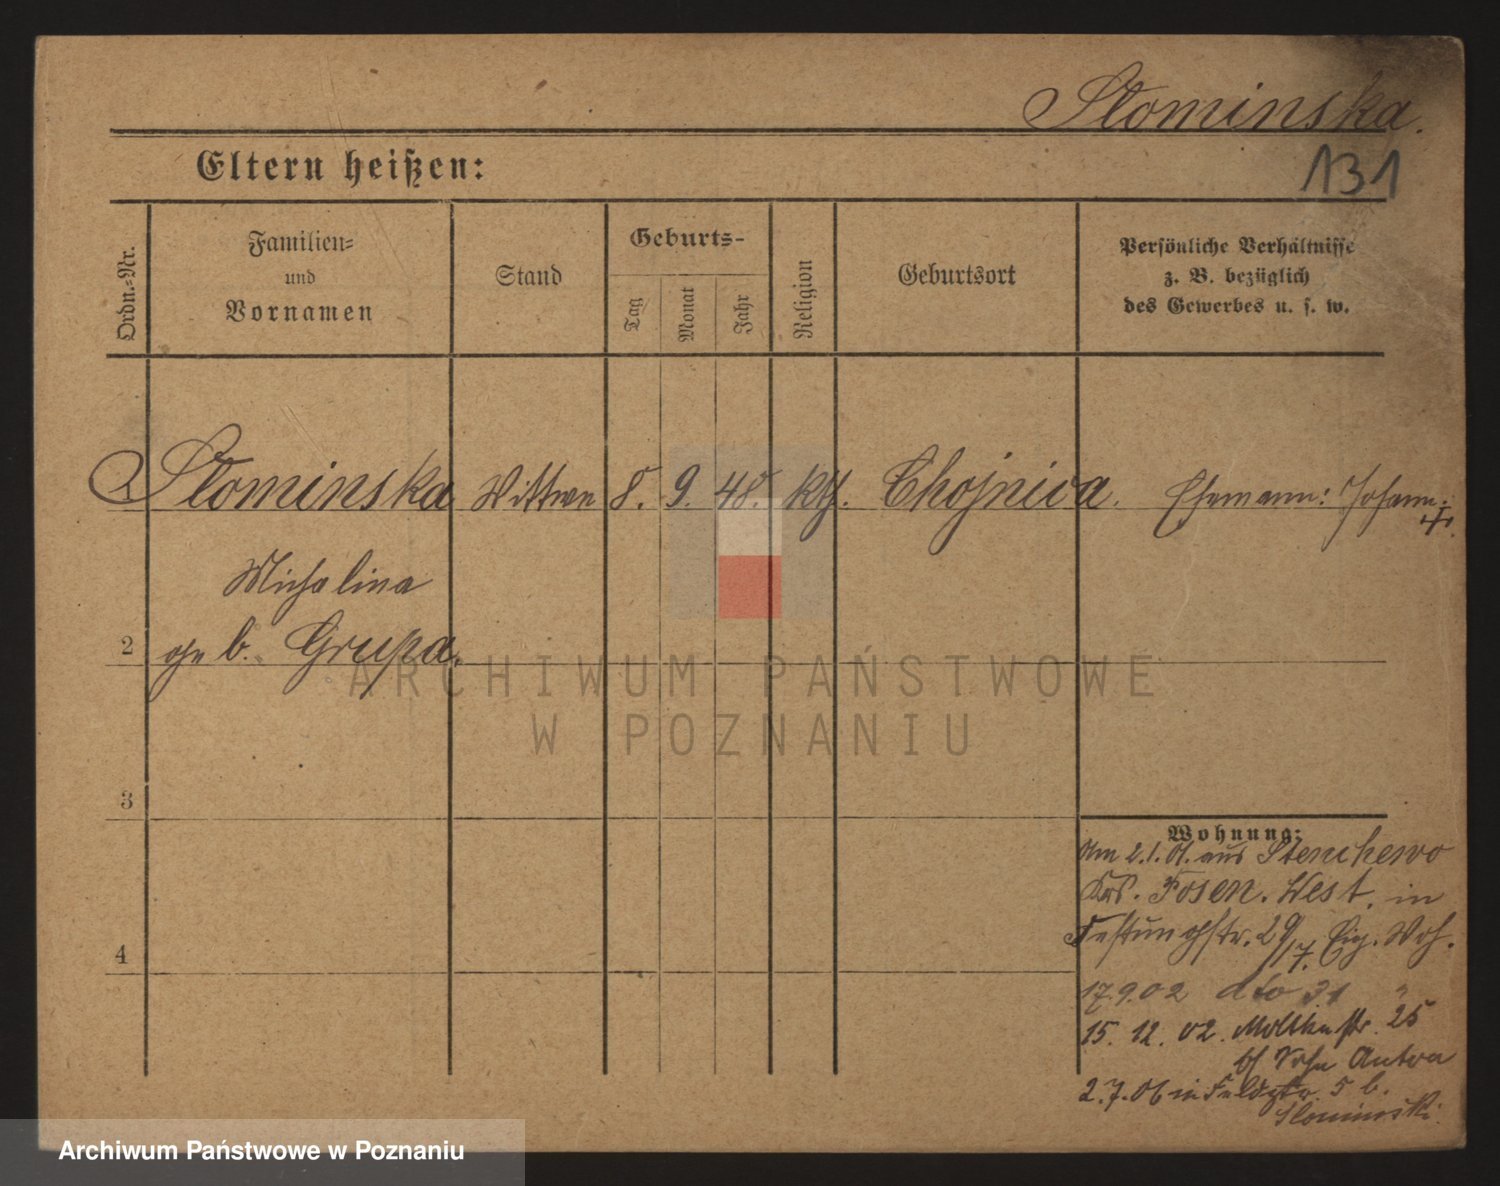 Słominska.
131
Eltern heißen:
Ordn.-Nr.
Familien-
und
Vornamen
Stand
Geburts-
Tag
Monat
Jahr
Religion
Geburtsort
Persönliche Verhältnisse
z. B. bezüglich
des Gewerbes u. s. w.
Słominska Wittwe 8. 9. 48. kth. Chojnica. Ehemann: Johann +.
Michalina
2 geb. Grupa.
3
4
Wohnung:
Am 2.1.01. aus Stenschewo
Krs. Posen. West. in
Festungstr. 29/17. Eig. Woh.
17.9.02 dto 31 "
15. 12. 02. Moltkestr. 25
b/ Sohn Anton
2.7.06 in Feldstr. 5 b.
Slominski.
ARCHIWUM PAŃSTWOWE
W POZNANIU
Archiwum Państwowe w Poznaniu